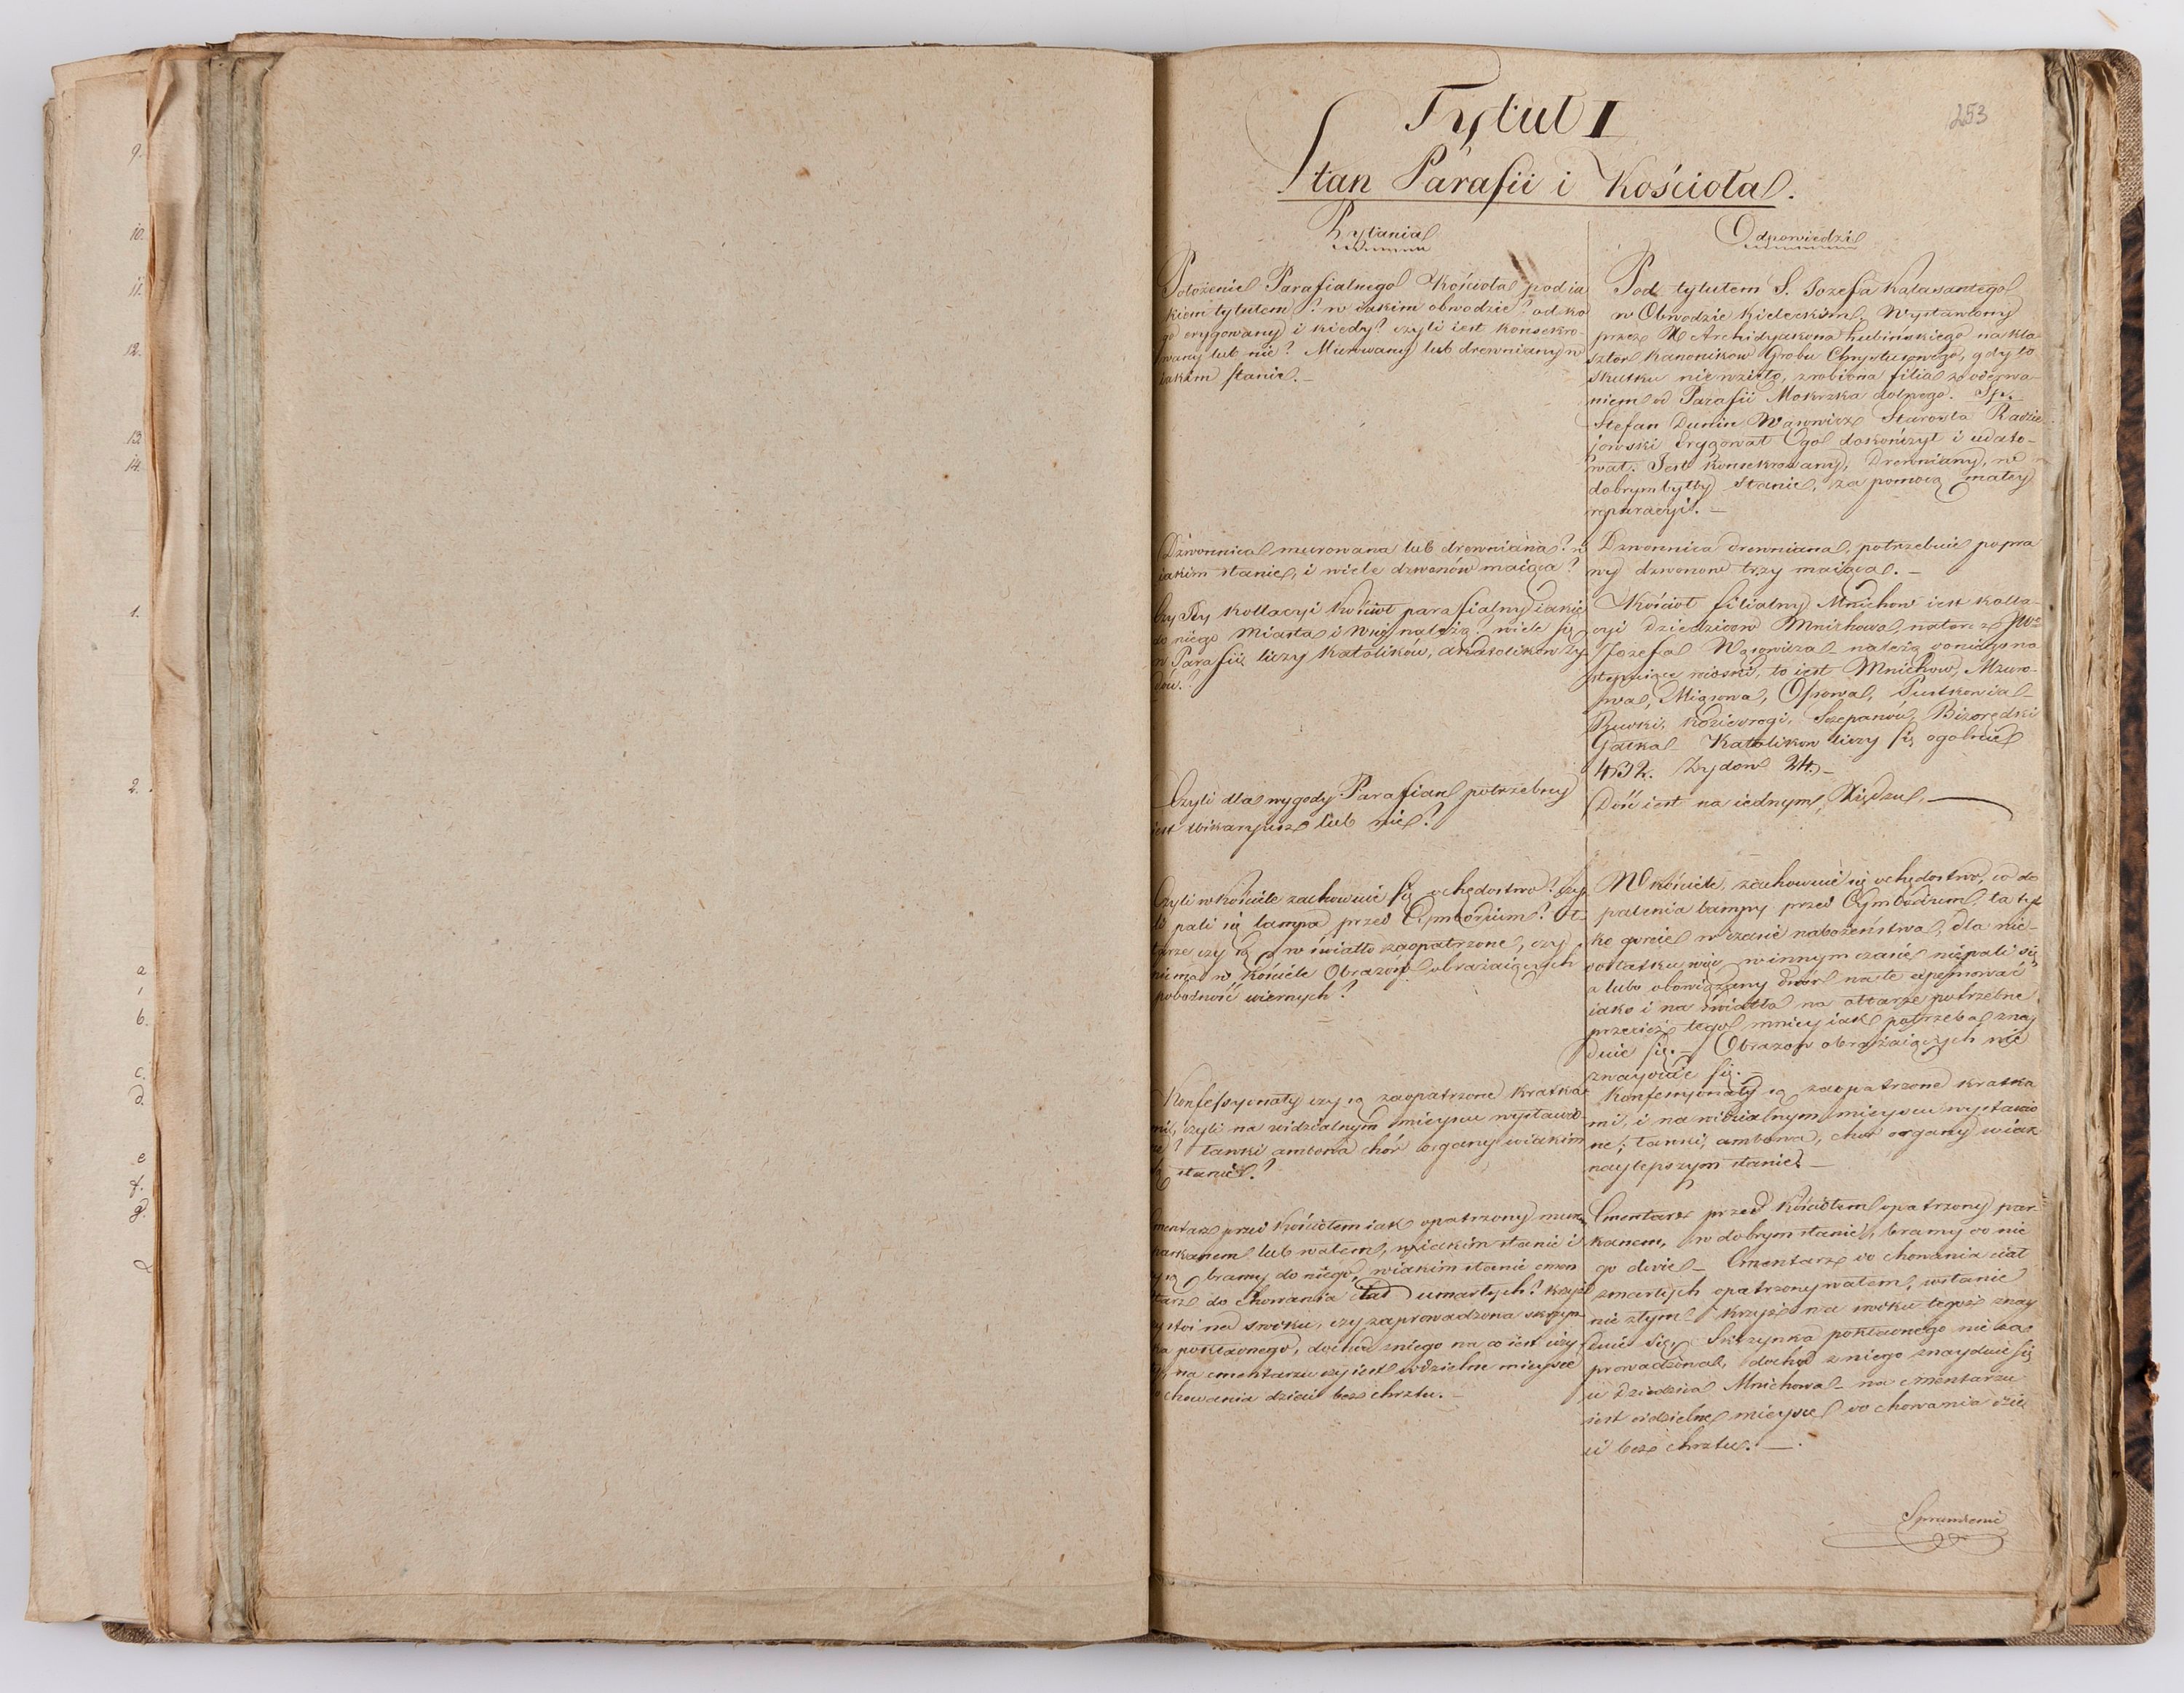 9.
10.
11.
12.
13
14.
1.
2.
a
b.
c.
d.
e
f.
g.
253
Tytuł I
Stan Parafii i Kościoła.
Pytania
Położenie Parafialnego Kościoła pod ia
kiem tytułem? w iakim obwodzie? od ko
go erygowany i kiedy? czyli iest konsekro-
wany lub nie? Murowany lub drewniany w
iakim stanie. -
Dzwonnica murowana lub drewniana? w
iakim stanie, i wiele dzwonów maiąca?
Czyiey kollacyi Kościoł parafialny iakie
do niego Miasta i Wsie należą? wiele się
w Parafii liczy Katolików, Akatolikow Ży
dów?
Czyli dla wygody Parafian potrzebny
iest Wikaryusz lub nie?
Czyli w Kościele zachowuie się ochędostwo? Czy
li pali się lampa przed Cymborium? Oł
tarze czy są w światło zaopatrzone, czy
niema w Kościele Obrazów obrażaiących
pobożność wiernych?
Konfessyonały czy są zaopatrzone kratka
mi, czyli na widzialnym mieyscu wystawio
ne? ławki ambona chór organy wiakim
są stanie?
Cmentarz przed Kościołem iak opatrzony murem
parkanem lub wałem, wiakim stanie i
czy są bramy do niego, wiakim stanie cmen
tarz do chowania ciał umarłych? krzyż
czy stoi na srodku, czy zaprowadzona skrzyn
ka pokładnego, dochód zniego na co iest uży
ty, na cmentarzu czy iest oddzielne mieysce
do chowania dzieci bez chrztu. -
Odpowiedzi
Pod tytułem S. Jozefa Kalasantego
w Obwodzie Kieleckim, Wystawiony
przez X Archidyakona Łubińskiego na kla
sztor Kanonikow Grobu Chrystusowego, gdy to
skutku nie wzieło, zrobiona filia z oderwa-
niem od Parafii Mokrzka dolnego. Sp.
Stefan Dunin Wąsowicz Starosta Radzie
jowski Erygował Ogo dokończył i udoto-
wał. Jest konsekrowany, Drewniany, w
dobrym byłby stanie, za pomocą małey
reparacyi. -
Dzwonnica drewniana, potrzebuie popra
wy dzwonow trzy maiąca. -
Kościoł filialny Mnichow iest kolla-
cyi Dziedzicow Mnichowa, natenczas JW
Jozefa Wąsowicza należą do niego na
stępuiące wioski, to iest Mnichow, Mzuro-
wa, Miąsowa, Opsowa, Pustkowia
Brwki, Kozierogi, Szczepanów, Bizorędki
Gałka Katolikow liczy się ogolnie
432. Żydow 24 -
Dość iest na iednym, Xiędzu, -
W kościele, zachowuie się ochędostwo, co do
palenia lampy przed Cymborium, ta tyl
ko goreie w czasie nabożeństwa, dla nie-
dostatku więc w innym czasie niepali się
a lubo obowiązany Dwór na te expensować
iako i na światła na ołtarze potrzebne,
przecież tego mniey iak potrzeba znay
duie się. - Obrazow obrażaiących nie
znayduie się. -
Konfessyonały są zaopatrzone kratka
mi, i na widzialnym mieyscu wystawio
ne; ławki, ambona, chor organy wiak
naylepszym stanie. -
Cmentarz przed Kościołem opatrzony par-
kanem, w dobrym stanie, bramy do nie
go dwie - Cmentarz do chowania ciał
zmarłych opatrzony wałem, wstanie
nie złym krzyż na srodku tegoż znay
duie się, Skrzynka pokładnego nie za
prowadzona, dochod z niego znayduie się
u Dziedzica Mnichowa - na cmentarzu
iest oddzielne mieysce do chowania dzie
ci bez chrztu. -